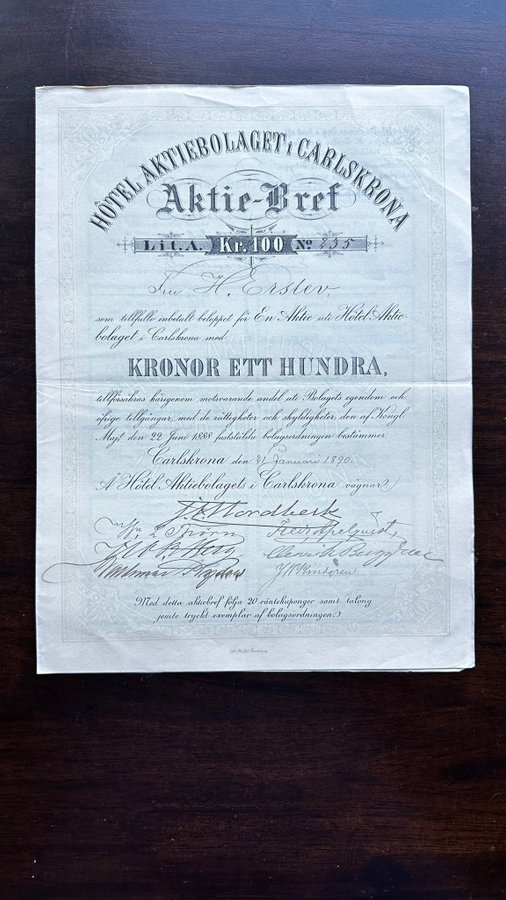 HÔTEL AKTIEBOLAGET i CARLSKRONA
Aktie-Bref
Lit. A. Kr. 100 No 735
Fru H. Erslev,
som tillfullo inbetalt beloppet för En Aktie uti Hôtel Aktie
bolaget i Carlskrona med
KRONOR ETT HUNDRA,
tillförsäkras härigenom motsvarande andel uti Bolagets egendom och
öfriga tillgångar, med de rättigheter och skyldigheter, den af Kongl.
Majt den 22 Juni 1888 fastställda bolagsordningen bestämmer.
Carlskrona den 31 Januari 1890.
Å Hôtel Aktiebolagets i Carlskrona vägnar:
Med detta aktiebref följa 20 räntekuponger samt talong
jemte tryckt exemplar af bolagsordningen.